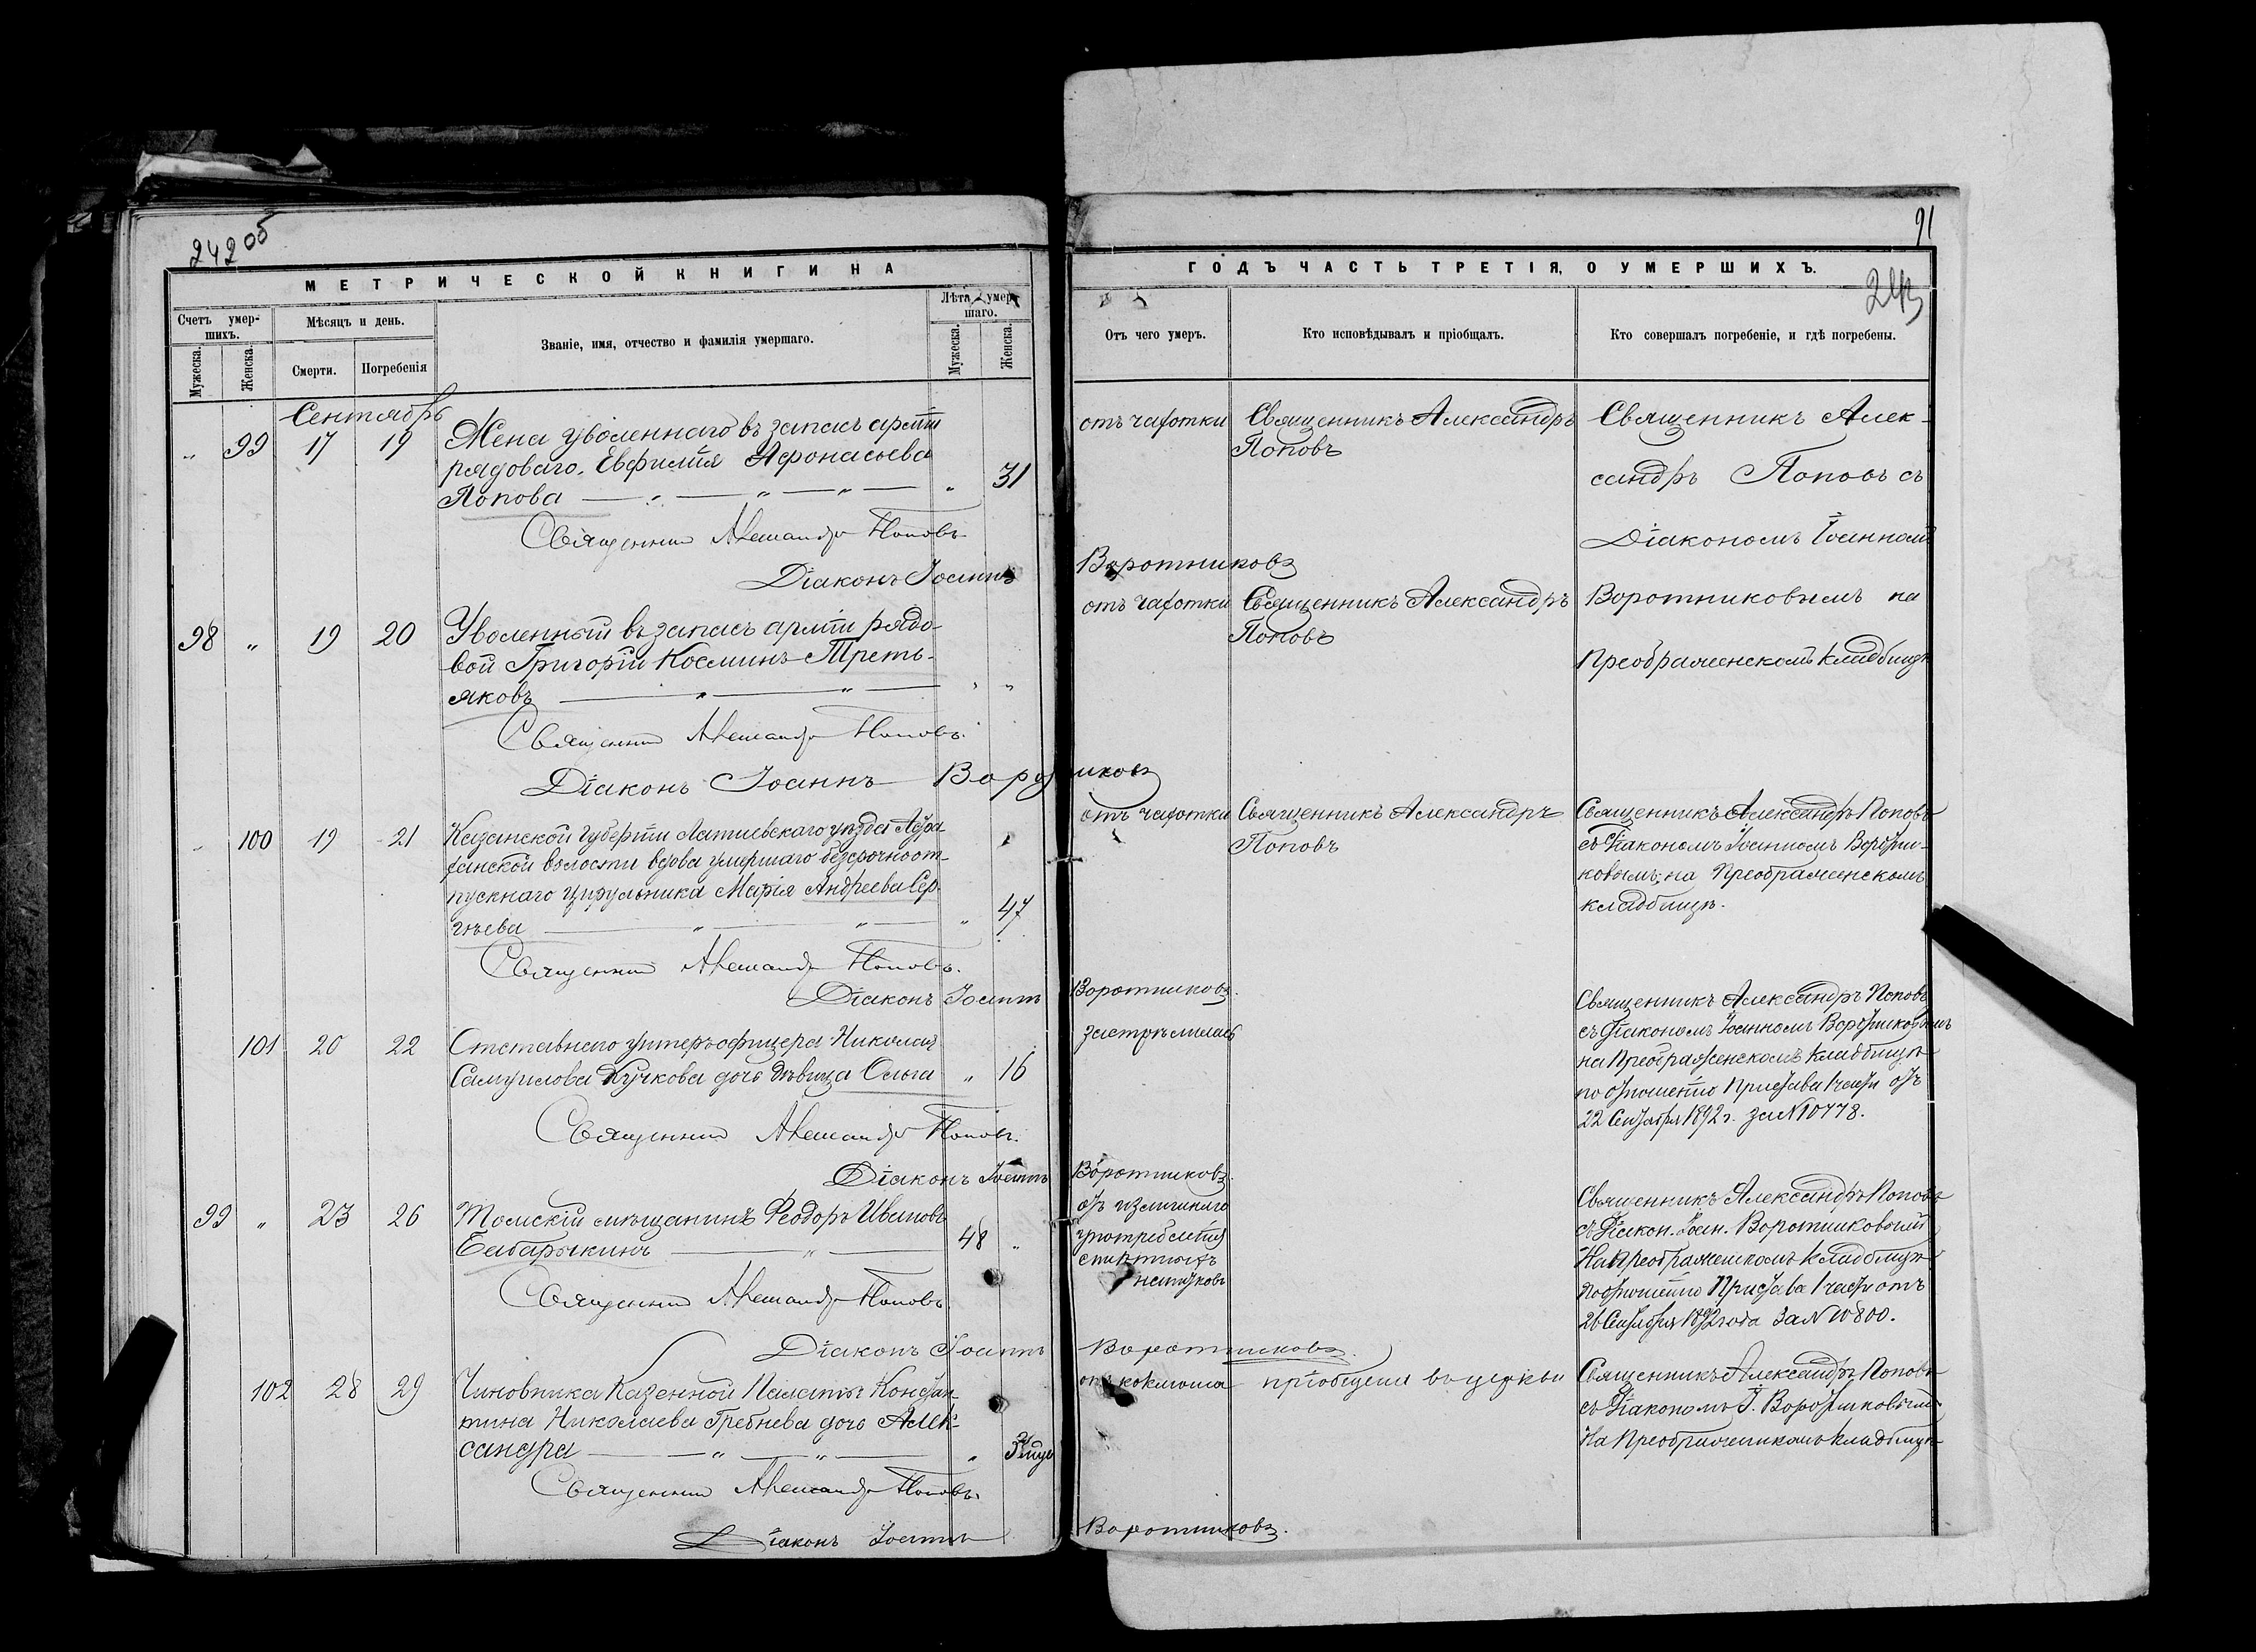 242об
МЕТРИЧЕСКОЙ КНИГИ НА
Счетъ умер-
шихъ.
Мѣсяцъ и день.
Званіе, имя, отчество и фамилія умершаго.
Лѣта умер-
шаго.
Мужеска.
Женска.
Смерти.
Погребенія
Мужеска.
Женска.
Сентябрь
„ 99 17 19 Жена уволеннаго въ запасъ арміи
рядоваго Евфимія Афонасьева
Попова — „ — „ — „ — „ 31
Священник Александр Поповъ
Діаконъ Іоаннъ
98 „ 19 20 Уволенный въ запасъ арміи рядо-
вой Григорій Косминъ Треть-
яковъ — „ — „ — „ „
Священник Александр Поповъ.
Діаконъ Іоаннъ Воротниковъ
„ 100 19 21 Казанской губерніи уѣзда
волости вдова умершаго безсрочноот-
пускнаго цирульника Марія Андреева Сер-
гѣева — „ — „ — „ 47
Священник Александр Поповъ.
Діаконъ Іоаннъ
101 20 22 Отставнаго унтеръ-офицера Николая
Самуилова Кучкова дочь дѣвица Ольга „ 16
Священник Александр Поповъ.
Діаконъ Іоаннъ
99 „ 23 26 Томскій мѣщанинъ Ѳеодоръ Ивановъ
Бабарыкинъ — „ — 48 „
Священник Александр Поповъ
Діаконъ Іоаннъ
102 28 29 Чиновника Казенной Палаты Констан-
тина Николаева Гребнева дочь Алек-
сандра — „ — „ — „
Священник Александр Поповъ.
Діаконъ Іоаннъ
91
243
ГОДЪ ЧАСТЬ ТРЕТІЯ, О УМЕРШИХЪ.
Отъ чего умеръ.
Кто исповѣдывалъ и пріобщалъ.
Кто совершалъ погребеніе, и гдѣ погребены.
отъ чахотки Священникъ Александръ
Поповъ
Священникъ Алек-
сандръ Поповъ съ
Діакономъ Іоанномъ
Воротниковъ
отъ чахотки Священникъ Александръ
Поповъ
Воротниковымъ на
Преображенскомъ кладбищѣ
отъ чахотки Священникъ Александръ
Поповъ
Священникъ Александръ Поповъ
съ Діакономъ Іоанномъ Воротни-
ковымъ, на Преображенскомъ
кладбищѣ.
Воротниковъ.
застрѣлилась
Священникъ Александръ Поповъ
съ Діакономъ Іоанномъ Воротниковымъ
на Преображенскомъ кладбищѣ
по отношенію Пристава 1 части отъ
22 Сентября 1892 г. за № 10778.
Воротниковъ.
отъ излишняго
употребленія
спиртныхъ
напитковъ
Священникъ Александръ Поповъ
съ Діакон. Іоан. Воротниковымъ
На Преображенскомъ кладбищѣ
по отношенію Пристава 1 части отъ
26 Сентября 1892 года за № 10800.
Воротниковъ.
отъ коклюша пріобщена въ церкви
Священникъ Александръ Поповъ
съ Діакономъ І. Воротниковымъ
На Преображенскомъ кладбищѣ
Воротниковъ.